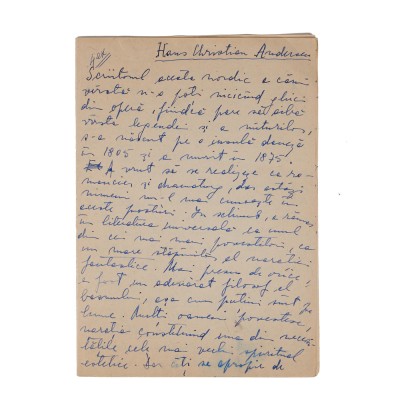 Hans Christian Andersen
Scriitorul acesta nordic a cărui
vârstă n-a fost nicicând
din operă, fiindcă pare să aibă
vârsta legendei și a miturilor,
s-a născut pe o insulă daneză
în 1805 și a murit în 1875.
A vrut să se realizeze ca ro-
mancier și dramaturg, dar astăzi
nimeni nu-l mai cunoaște în
aceste postúri. În schimb, a rămas
în literatura universală ca unul
din cei mai mari povestitori, ca
un mare stăpânitor al narației
fantastice. Mai presus de orice,
a fost un adevărat filosof al
basmului, așa cum puțini sunt pe
lume. Mulți oameni povestesc,
narația constituind una din necesi-
tățile cele mai vechi spiritual
estetice. Dar câți se apropie de